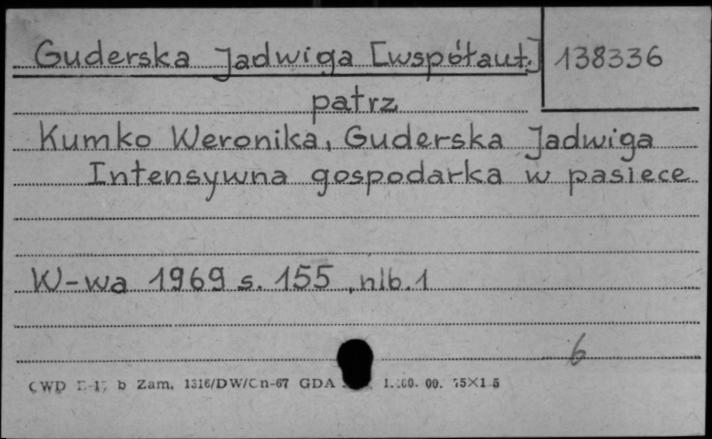 Guderska Jadwiga [współaut.] 138336
patrz
Kumko Weronika, Guderska Jadwiga
Intensywna gospodarka w pasiece
W-wa 1969 s. 155, nlb. 1
6
CWD b Zam. 1316/DW/Cn-67 GDA